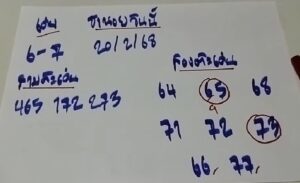 เด่น
6-7
ฮานอยวันนี้
20/2/68
สามตัวเด่น
465 172 273
สองตัวเด่น
64 65 68
71 72 73
66, 77,